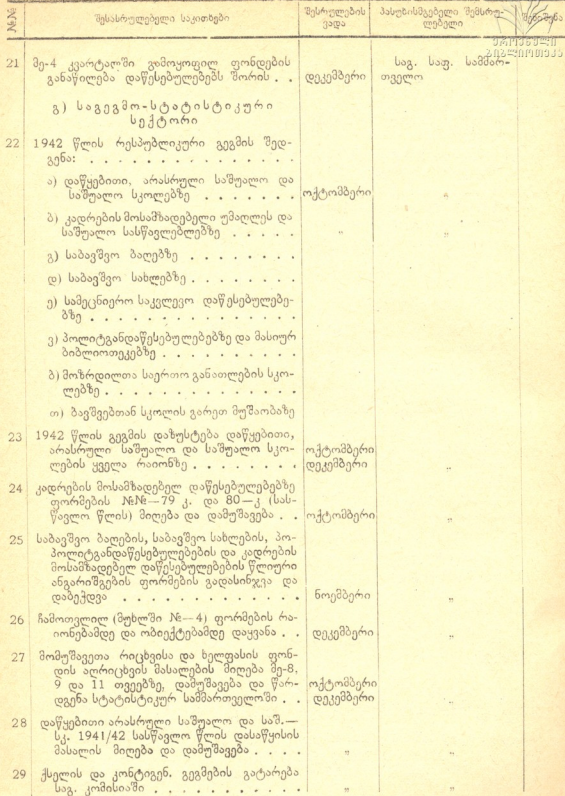 №№ შესასრულებელი საკითხები შესრულების ვადა პასუხისმგებელი შემსრულებელი შენიშვნა
ეროვნული
ბიბლიოთეკა
21 მე-4 კვარტალში გამოყოფილ ფონდების საგ. საფ. სამმარ-
განაწილება დაწესებულებებს შორის . . დეკემბერი თველო
გ) საგეგმო-სტატისტიკური
სექტორი
22 1942 წლის რესპუბლიკური გეგმის შედ-
გენა: . . . . . . . . . . . . . .
ა) დაწყებითი, არასრული საშუალო და
საშუალო სკოლებზე . . . . . . . ოქტომბერი „
ბ) კადრების მოსამზადებელი უმაღლეს და
საშუალო სასწავლებლებზე . . . . . „ „
გ) საბავშვო ბაღებზე . . . . . . . .
დ) საბავშვო სახლებზე . . . . . . . .
ე) სამეცნიერო საკვლევო დაწესებულებე-
ბზე . . . . . . . . . . . . . .
ვ) პოლიტგანდაწესებულებებზე და მასიურ
ბიბლიოთეკებზე . . . . . . . . . .
ბ) მოზრდილთა საერთო განათლების სკო-
ლებზე . . . . . . . . . . . . .
თ) ბავშვებთან სკოლის გარეთ მუშაობაზე
23 1942 წლის გეგმის დაზუსტება დაწყებითი,
არასრული საშუალო და საშუალო სკო- ოქტომბერი
ლების ყველა რაიონზე . . . . . . . დეკემბერი „
24 კადრების მოსამზადებელ დაწესებულებებზე
ფორმების №№—79 კ. და 80—კ (სას-
წავლო წლის) მიღება და დამუშავება . . ოქტომბერი „
25 საბავშვო ბაღების, საბავშვო სახლების, პო-
პოლიტგანდაწესებულებების და კადრების
მოსამზადებელ დაწესებულებების წლიური
ანგარიშგების ფორმების გადასინჯვა და
დაბეჭდვა . . . . . . . . . . . . ნოემბერი „
26 ჩამოთვლილ (მუხლში №—4) ფორმების რა-
იონებამდე და ობიექტებამდე დაყვანა . . დეკემბერი „
27 მომუშავეთა რიცხვისა და ხელფასის ფონ-
დის აღრიცხვის მასალების მიღება მე-8,
9 და 11 თვეებზე, დამუშავება და წარ- ოქტომბერი „
დგენა სტატისტიკურ სამმართველოში . . დეკემბერი „
28 დაწყებითი არასრული საშუალო და საშ.—
სკ. 1941/42 სასწავლო წლის დასაწყისის
მასალის მიღება და დამუშავება . . . . „ „
29 ქსელის და კონტიგენ. გეგმების გატარება
საგ. კომისიაში . . . . . . . . . . „ „